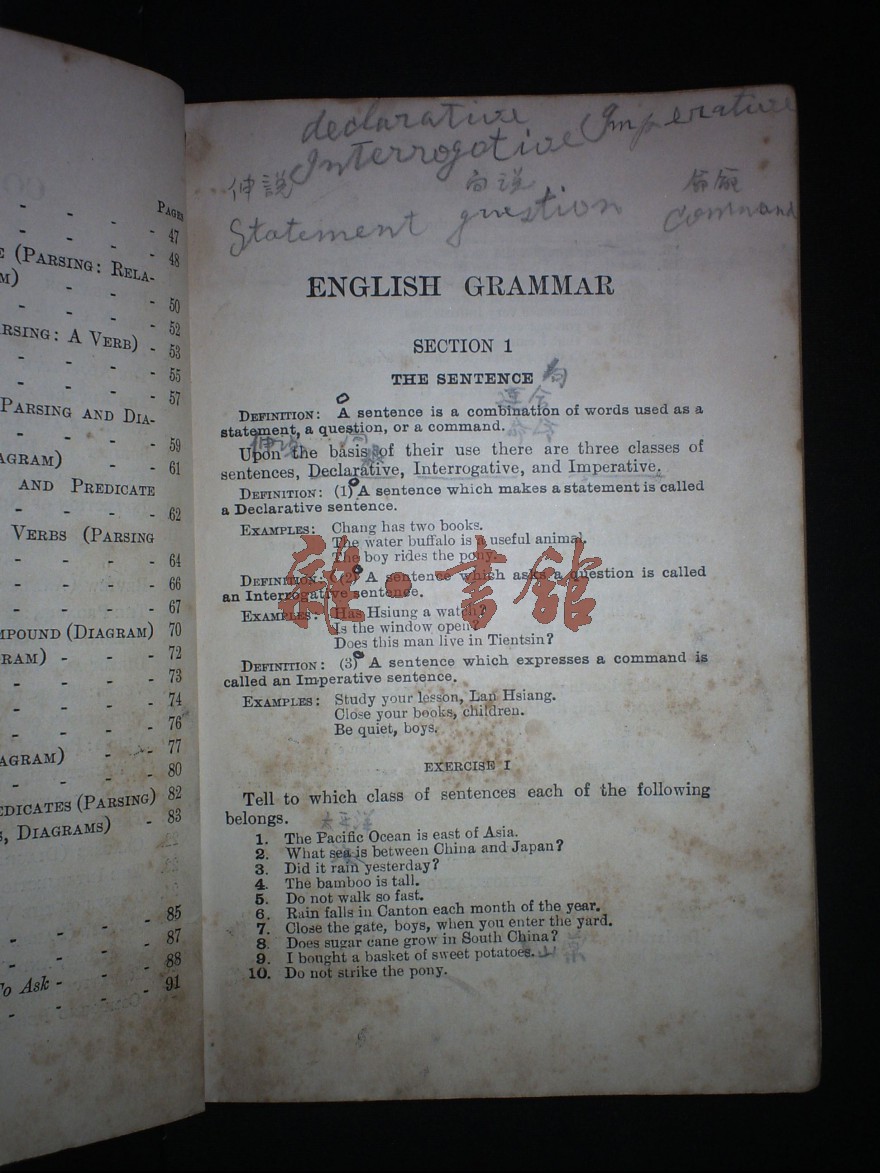 PAGES
- - - 47
- - - 48
E (PARSING: RELA-
M) - - - 50
- - - 52
RSING: A VERB) - 53
- - - 55
- - - 57
PARSING AND DIA-
- - - 59
AGRAM) - - 61
AND PREDICATE
- - - 62
VERBS (PARSING
- - - 64
- - - 66
- - - 67
MPOUND (DIAGRAM) 70
GRAM) - - - 72
- - - 73
- - - 74
- - - 76
AGRAM) - - 77
- - - 80
EDICATES (PARSING) 82
S, DIAGRAMS) - 83
- - - 85
- - - 87
- - - 88
To Ask - - - 91
declarative
Interrogotive Imperative
伸說
Statement question Command
ENGLISH GRAMMAR
SECTION 1
THE SENTENCE 句
DEFINITION: A sentence is a combination of words used as a
statement, a question, or a command.
Upon the basis of their use there are three classes of
sentences, Declarative, Interrogative, and Imperative.
DEFINITION: (1) A sentence which makes a statement is called
a Declarative sentence.
EXAMPLES: Chang has two books.
The water buffalo is a useful animal.
The boy rides the pony.
DEFINITION: (2) A sentence which asks a question is called
an Interrogative sentence.
EXAMPLES: Has Hsiung a watch?
Is the window open?
Does this man live in Tientsin?
DEFINITION: (3) A sentence which expresses a command is
called an Imperative sentence.
EXAMPLES: Study your lesson, Lan Hsiang.
Close your books, children.
Be quiet, boys.
EXERCISE I
Tell to which class of sentences each of the following
belongs.
太平洋
1. The Pacific Ocean is east of Asia.
2. What sea is between China and Japan?
3. Did it rain yesterday?
4. The bamboo is tall.
5. Do not walk so fast.
6. Rain falls in Canton each month of the year.
7. Close the gate, boys, when you enter the yard.
8. Does sugar cane grow in South China?
9. I bought a basket of sweet potatoes.
10. Do not strike the pony.
雜·書館